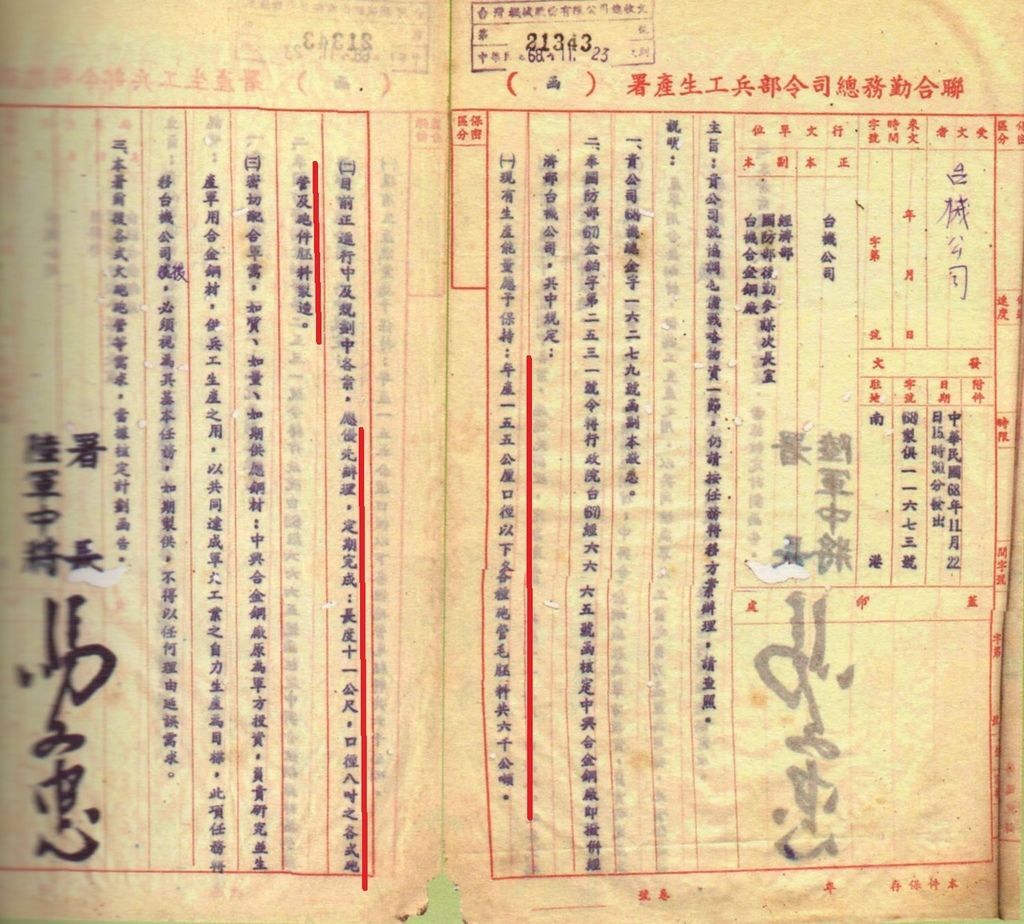 台灣機械股份有限公司總收文
第 21343 號
68. 11. 23
聯合勤務總司令部兵工生產署（函）
保密區分
速度
時限
受文者
台機公司
來文
時間
字號
年 月 日
字第 號
發文
附件
日期
字號
駐地
中華民國68年11月22日15時30分發出
68製俱一一六七三號
南港
行文單位
正本
副本
台機公司
經濟部
國防部後勤參謀次長室
台機合金鋼廠
蓋印處
主旨：貴公司就協調屯備戰略物資一節，仍請按任務轉移方案辦理，請查照。
說明：
一、貴公司68機總金字一六二七九號函副本敬悉。
二、奉國防部67金鉑字第二五三一號令轉行政院台67經六六六五號函核定中興合金鋼廠即撥併經
濟部台機公司，其中規定：
㈠現有生產能量應予保持：年產一五五公厘口徑以下各種砲管毛胚料共六千公噸。
保密區分
㈡目前正進行中及規劃中各案，應優先辦理，定期完成：長度十一公尺，口徑八吋之各式砲
管及砲件胚料製造。
㈢密切配合軍需，如質、如量、如期供應鋼材：中興合金鋼廠原為軍方投資，負責研究並生
產軍用合金鋼材，供兵工生產之用，以共同達成軍火工業之自力生產為目標，此項任務轉
移台機公司後，必須視為其基本任務，如期製供，不得以任何理由延誤需求。
三、本署前後各式火砲砲管等需求，當據核定計劃函告。
署長
陸軍中將
本件保存 年
卷號